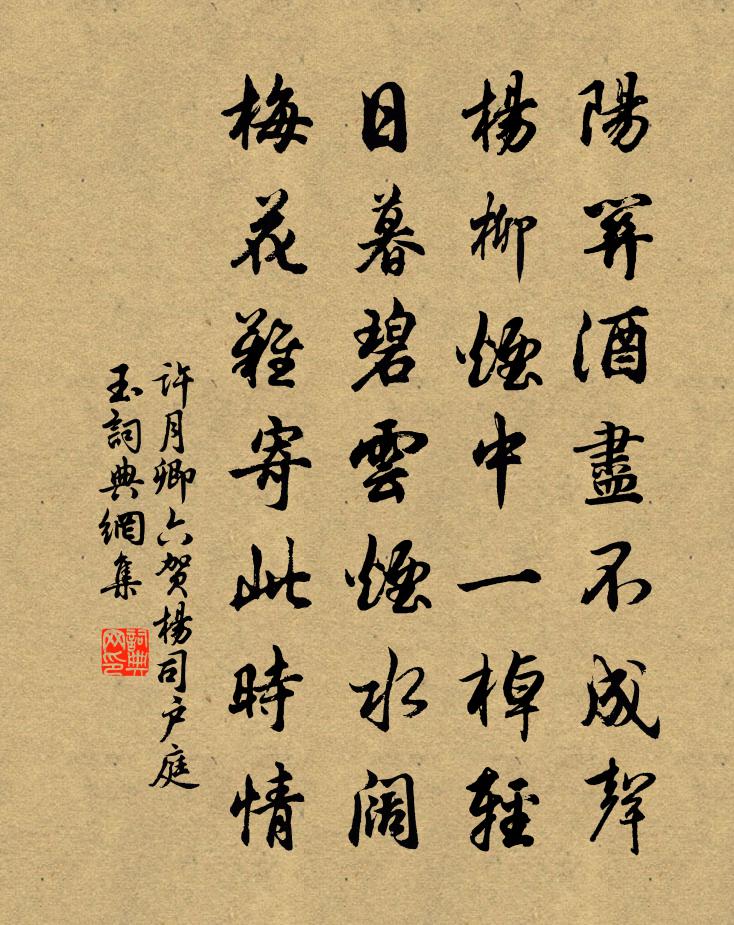 陽關酒盡不成聲
楊柳煙中一棹輕
日暮碧雲煙水闊
梅花難寄此時情
許月卿六賀楊司戶庭
玉詞典網集
詞典网印